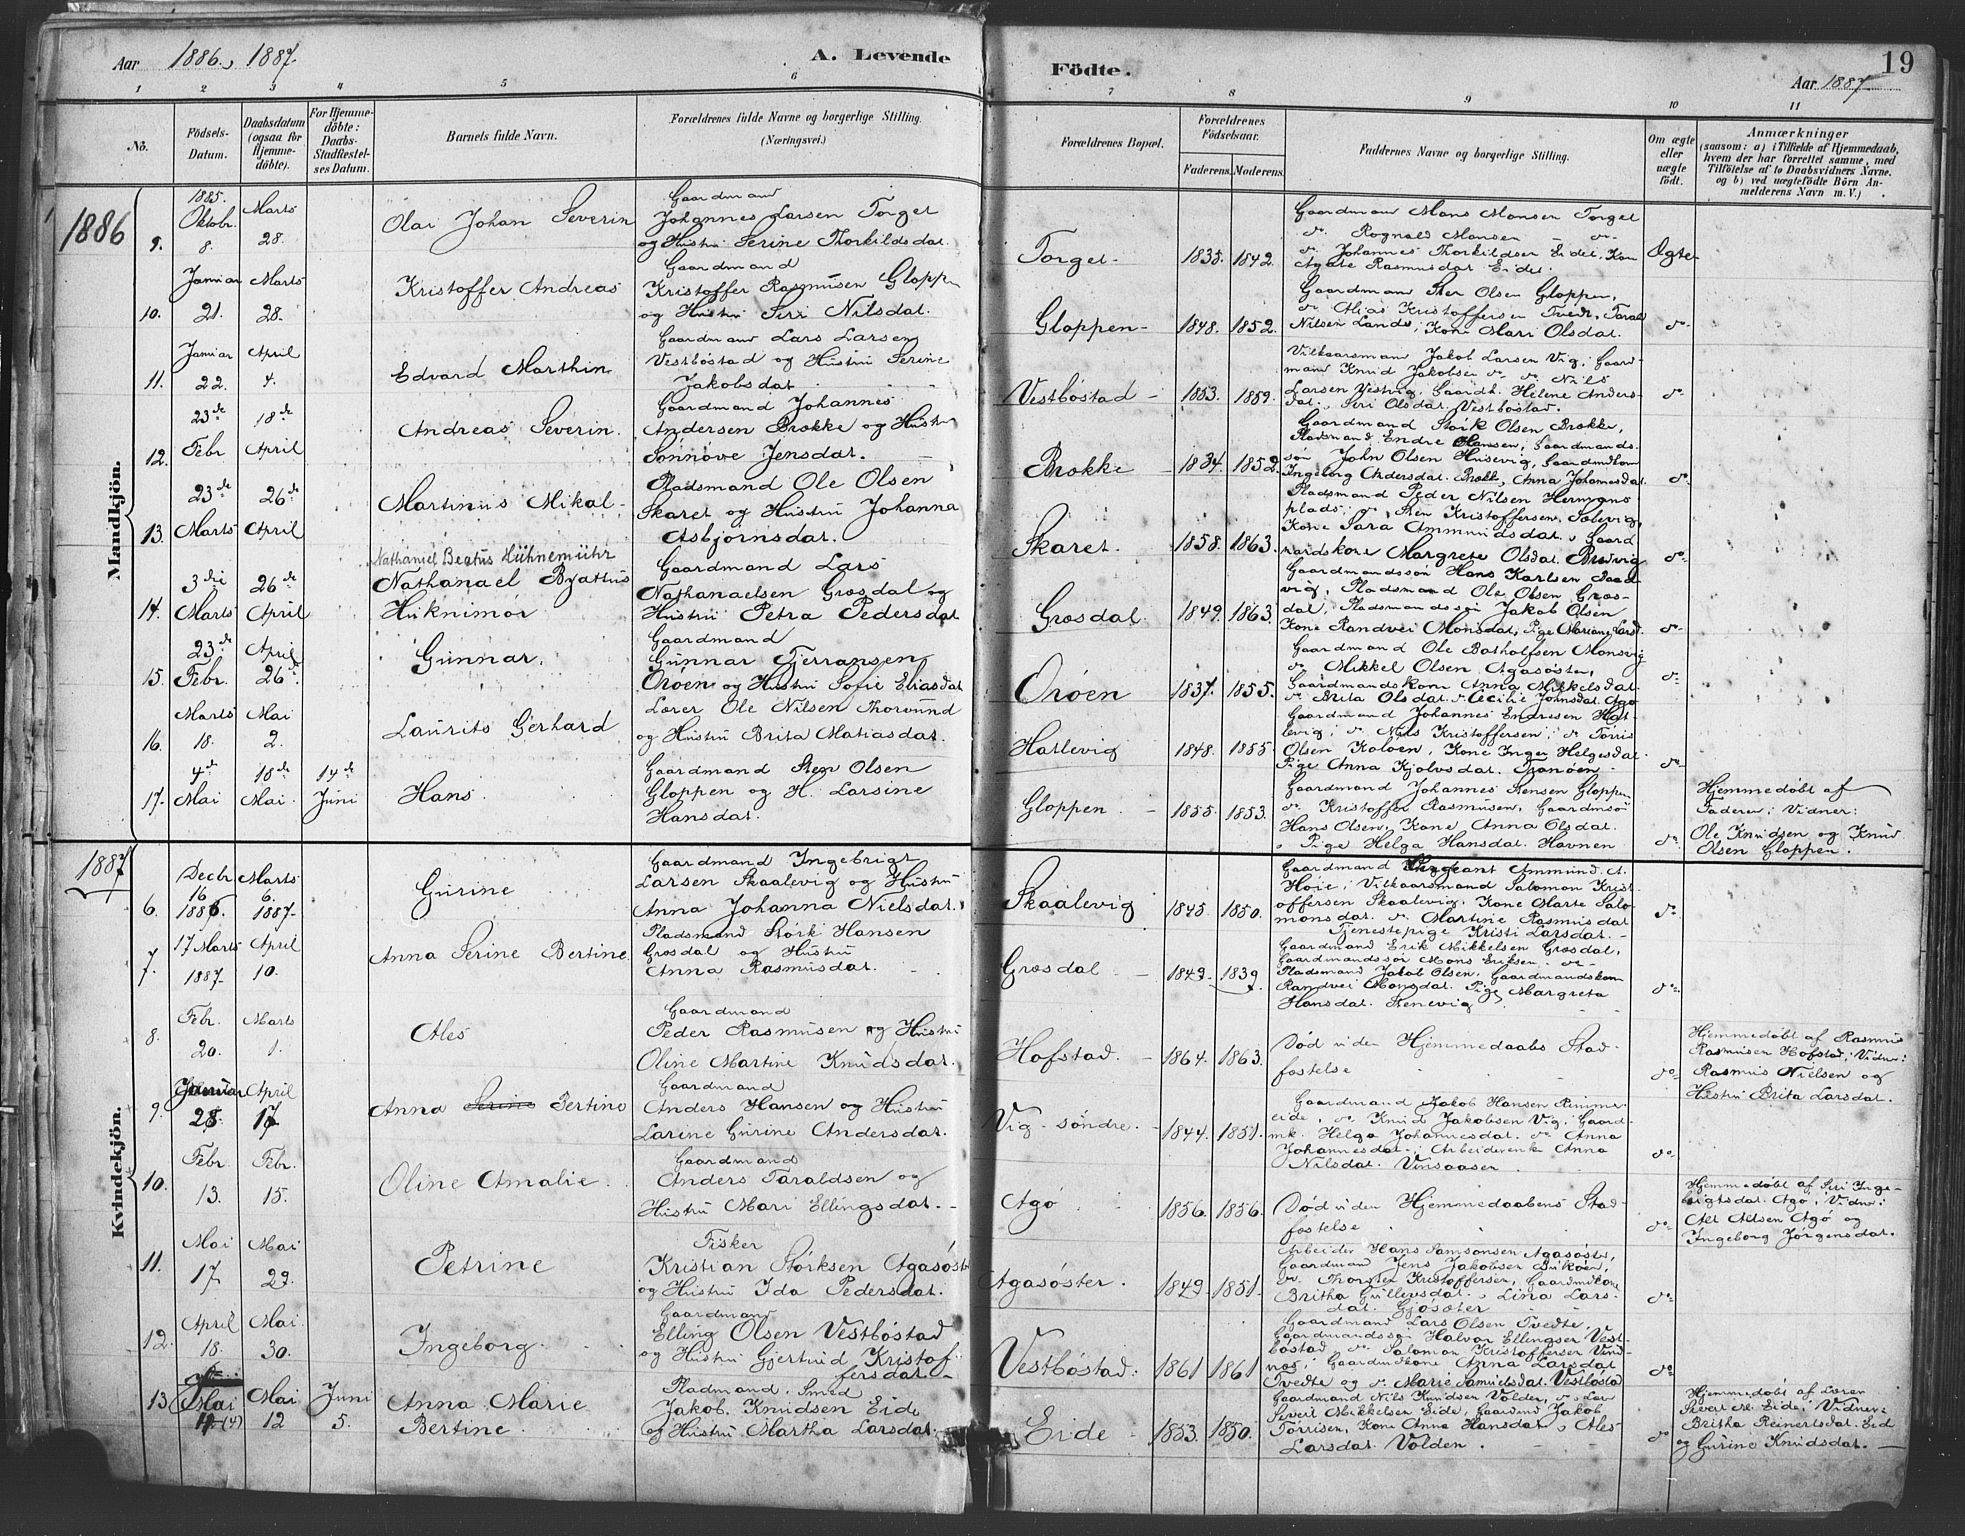 Aar 1886, 1887.
A. Levende
Födte.
19
Aar 1887
1 2 3 4 5 6 7 8 9 10 11
No.
Födsels-
Datum.
Daabsdatum
(ogsaa for
Hjemme-
döbte).
For Hjemme-
döbte:
Daabs-
Stadfæstel-
ses Datum.
Barnets fulde Navn.
Forældrenes fulde Navne og borgerlige Stilling.
(Næringsvei.)
Forældrenes Bopæl.
Forældrenes
Födselsaar.
Faderens. Moderens.
Faddernes Navne og borgerlige Stilling.
Om ægte
eller
uægte
födt.
Anmærkninger
(saasom: a) i Tilfælde af Hjemmedaab,
hvem der har forrettet samme, med
Tilföielse af to Daabsvidners Navne.
og b) ved uægtefödte Börn An-
melderens Navn m. V.)
Mandkjön.
1886
9.
1885.
Oktobr.
8.
Marts
28.
Olai Johan Severin
Gaardmand
Johannes Larsen Torget
og Hustru Serine Thorkildsdat.
Torget
1835. 1842.
Gaardmand Mons Monsen Torget
do Rognald Monsen do
do Johannes Thorkildsen Eidet, Kone
Agate Rasmusdat Eidet.
Ægte
10.
Januar
21.
Marts
28.
Kristoffer Andreas
Gaardmand
Kristoffer Rasmusen Gloppen
og Hustru Siri Nilsdat.
Gloppen
1848. 1852.
Gaardmand Sten Olsen Gloppen,
do Elias Kristoffersen Tvedt, Tarald
Nilsen Lands, Kone Mari Olsdat.
do
11.
Januar
22.
April
4.
Edvard Marthin
Gaardmand Lars Larsen
Vestböstad og Hustru Serine
Jakobsdat.
Vestböstad
1853. 1859.
Vilkaarsmand Jakob Larsen Vig, Gaard-
mand Knud Jakobsen do do Nils
Larsen Vestvig, Gaardk. Helene Anders-
dat., Siri Olsdat. Vestböstad.
do
12.
23de
Febr
18de
April
Andreas Severin.
Gaardmand Johannes
Andersen Brække og Hustru
Sönnöve Jensdat.
Brække
1834. 1852.
Gaardmand Störk Olsen Brække,
Pladsmand Endre Hansen, Gaardmands-
sön John Olsen Husevig, Gaardmdkone
Ingeborg Andersdat. Brække, Anna Johannesdat
do
13.
23de
Marts
26de
April
Martinus Mikal
Pladsmand Ole Olsen
Skaret og Hustru Johanna
Asbjörnsdat.
Skaret.
1858. 1863.
Pladsmand Peder Nilsen Hermans-
plads, do Sten Kristoffersen, Sælevig,
Kone Sara Ammundsdat., Gaard
mandskone Margrete Olsdat. Bredvig
do
14.
3die
Marts
26de
April
Nathaniel Beatus Hühnemühr
Nathanael Byattus
Huknimör
Gaardmand Lars
Nathanaelsen Græsdal og
Hustru Petra Pedersdat
Græsdal.
1849. 1863.
Gaardmandssön Hans Karlsen
vig, Pladsmand Ole Olsen Græs-
dal, Pladsmandssön Jakob Olsen
Kone Randvei Monsdat, Pige Mariane Larsd.
do
15.
23de
Febr.
April
26de
Gunnar.
Gaardmand
Gunnar Tjerransen
Oröen og Hustru Sofie Eliasdat
Oröen
1837. 1855.
Gaardmand Ole Botholfsen Monsvig
do Mikkel Olsen Agasöster,
Gaardmandskone Anna Mikkelsdat.
do Brita Olsdat. do Cecilie Johnsdat. Agö
do
16.
Marts
18.
Mai
2.
Laurits Gerhard
Lærer Ole Nilsen Thorsund
og Hustru Brita Matiasdat.
Hatlevig
1848. 1855.
Gaardmand Johannes Endresen Hat-
levig, do Nils Kristoffersen, do Torris
Olsen Koloen, Kone Inger Helgesdat
Pige Anna Kjolvsdat. Granöen.
do
17.
4de
Mai
18de
Mai.
14de
Juni
Hans.
Gaardmand Sten Olsen
Gloppen og H. Larsine
Hansdat.
Gloppen
1855. 1853.
Gaardmand Johannes Stensen Gloppen
do Kristoffer Rasmusen, Gaardmsön
Hans Olsen, Kone Anna Olsdat.
, Pige Helga Hansdat. Havnen
do
Hjemmedöbt af
Faderen; Vidner:
Ole Knudsen og Knud
Olsen Gloppen.
Kvindekjön.
1887
6.
Decbr
16
1886.
Marts
6.
1887.
Gurine
Gaardmand Ingebrigt
Larsen Skaalevig og Hustru
Anna Johanna Nielsdat.
Skaalevig
1845. 1850.
Gaardmand Sergeant Ammund A.
Höie, Vilkaarsmand Salomon Krist-
offersen Skaalevig, Kone Marte Salo-
monsdat. do Martine Rasmusdat
Tjenestepige Kristi Larsdat.
do
7.
17 Marts
1887.
April
10.
Anna Serine Bertine.
Pladsmand Störk Hansen
Græsdal og Hustru
Anna Rasmusdat.
Græsdal
1849. 1839.
Gaardmand Erik Mikkelsen Græsdal,
Gaardmandssön Mons Eriksen do
Pladsmand Jakob Olsen, Gaardmandskone
Randvei Monsdat. Pige Margreta
Hansdat. Stenevig
do
8.
Febr.
20.
Marts
1.
Ales
Gaardmand
Peder Rasmusen og Hustru
Oline Martine Knudsdat.
Hofstad.
1864. 1863.
Död uden Hjemmedaabs Stad-
fæstelse
do
Hjemmedöbt af Rasmus
Rasmusen Hofstad, Vidner:
Rasmus Nielsen og
Hustru Brita Larsdat.
9.
Januar
28.
April
17
Anna Serine Bertine
Gaardmand
Anders Hansen og Hustru
Larine Gurine Andersdat.
Vig söndre.
1844. 1851.
Gaardmand Jakob Hansen Rimme-
eide, do Knud Jakobsen Vig, Gaard-
mk. Helga Johannesdat. do Anna
Johannesdat., Arbeiderenke Anna
Nilsdat. Vinsaasen
do
10.
Febr.
13.
Febr.
15.
Oline Amalie.
Gaardmand
Anders Taraldsen og
Hustru Mari Ellingsdat.
Agö
1856. 1856.
Död uden Hjemmedaabens Stad-
fæstelse
do
Hjemmedöbt af Siri Inge-
brigtsdat. Agö, Vidner:
Alt Altsen Agö og
Ingeborg Jörgensdat.
11.
Mai
17
Mai
29.
Petrine
Fisker
Kristian Störksen Agasöst
og Hustru Ida Pedersdat.
Agasöster.
1849. 1851.
Arbeider Hans Samsonsen Agasöster,
Gaardmand Jens Jakobsen Buköen,
do Thorsten Kristoffersen, Gaardmdkone
Britha Gullevsdat., Lina Lars-
dat. Gjösæter
do
12.
April
18.
Mai
30.
Ingeborg.
Gaardmand
Elling Olsen Vestböstad
og Hustru Gjertrud Kristof-
fersdat
Vestböstad.
1861 1861
Gaardmand Lars Olsen Tvedte,
Gaardmandssön Halvor Ellingsen Vest-
böstad, do Salomon Kristoffersen Vind-
næs, Gaardmdkone Anna Larsdat
Tvedte og do Marie Samuelsdat. Vestböstad
do
13
Mai
(4)
Mai
12
Juni
5.
Anna Marie
Bertine.
Pladmand, Smed
Jakob Knudsen Eide
og Hustru Martha Larsdat.
Eide
1853. 1850.
Gaardmand Nils Knudsen Volden, do Lær
Sivert Mikkelsen Eide, Gaardmd Jakob
Torrisen, Kone Anne Hansdat, Ales
Larsdat Volden.
do
Hjemmedöbt af Læren
Sivert M. Eide, Vidner:
Britha Reinertsdat. Eid
og Gurine Knudsdat.